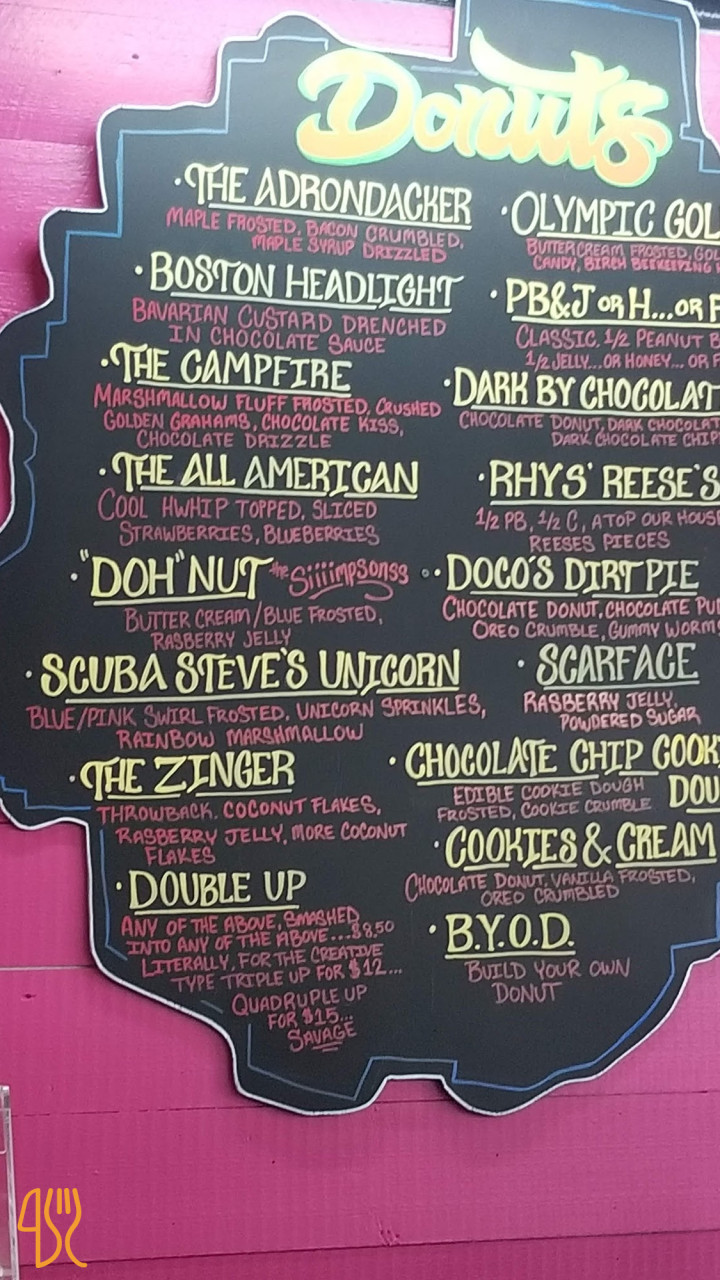 Donuts
·THE ADRONDACKER
MAPLE FROSTED, BACON CRUMBLED,
MAPLE SYRUP DRIZZLED
·BOSTON HEADLIGHT
BAVARIAN CUSTARD DRENCHED
IN CHOCOLATE SAUCE
·THE CAMPFIRE
MARSHMALLOW FLUFF FROSTED, CRUSHED
GOLDEN GRAHAMS, CHOCOLATE KISS,
CHOCOLATE DRIZZLE
·THE ALL AMERICAN
COOL HWHIP TOPPED, SLICED
STRAWBERRIES, BLUEBERRIES
·"DOH"NUT the Siiiimpsonss
BUTTER CREAM/BLUE FROSTED,
RASBERRY JELLY
·SCUBA STEVE'S UNICORN
BLUE/PINK SWIRL FROSTED, UNICORN SPRINKLES,
RAINBOW MARSHMALLOW
·THE ZINGER
THROWBACK. COCONUT FLAKES,
RASBERRY JELLY, MORE COCONUT
FLAKES
·DOUBLE UP
ANY OF THE ABOVE, SMASHED
INTO ANY OF THE ABOVE...$8.50
LITERALLY, FOR THE CREATIVE
TYPE TRIPLE UP FOR $12...
QUADRUPLE UP
FOR $15...
SAVAGE
·OLYMPIC GOL
BUTTERCREAM FROSTED, GOL
CANDY, BIRCH BEEKEEPING
·PB&J OR H...OR F
CLASSIC. 1/2 PEANUT B
1/2 JELLY...OR HONEY... OR F
·DARK BY CHOCOLAT
CHOCOLATE DONUT, DARK CHOCOLAT
DARK CHOCOLATE CHIP
·RHYS' REESE'S
1/2 PB, 1/2 C, ATOP OUR HOUS
REESES PIECES
·DOCO'S DIRT PIE
CHOCOLATE DONUT, CHOCOLATE PU
OREO CRUMBLE, GUMMY WORM
·SCARFACE
RASBERRY JELLY,
POWDERED SUGAR
·CHOCOLATE CHIP COOK
DOU
EDIBLE COOKIE DOUGH
FROSTED, COOKIE CRUMBLE
·COOKIES & CREAM
CHOCOLATE DONUT, VANILLA FROSTED,
OREO CRUMBLED
·B.Y.O.D.
BUILD YOUR OWN
DONUT